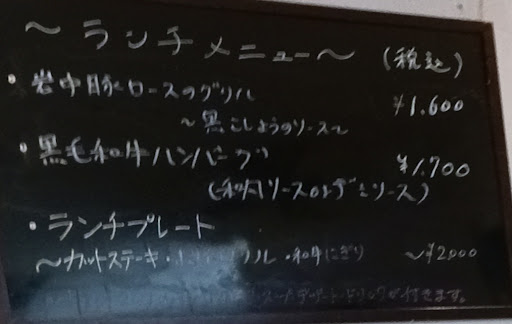 ～ランチメニュー～ (税込)
・岩中豚ロースのグリル ¥1.600
～黒こしょうのソース～
・黒毛和牛ハンバーグ ¥1.700
(和風ソースorデミソース)
・ランチプレート
～カットステーキ・ ・和牛にぎり ～¥2000
デザート・ドリンクが付きます。